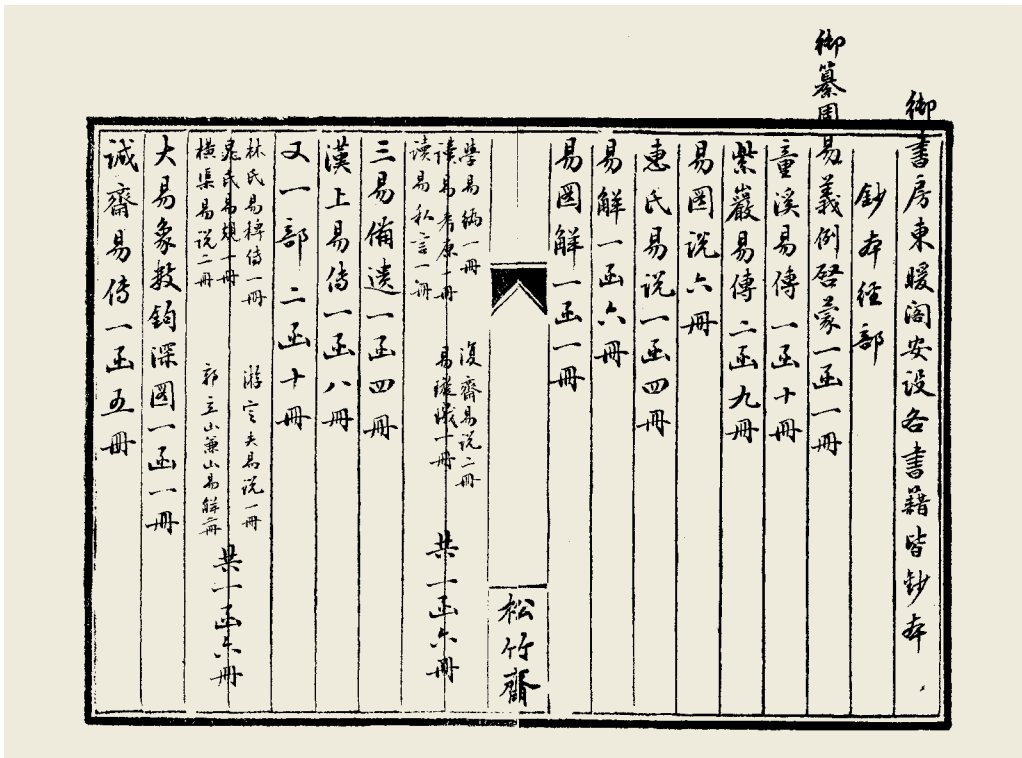 御書房東暖阁安设各書籍皆鈔本
鈔本经部
御纂周易義例啓蒙一函一冊
童溪易傳一函十冊
紫巖易傳二函九冊
易図说六冊
惠氏易说一函四冊
易解一函六冊
易図解一函一冊
松竹齋
學易编一冊
復齋易说二冊
读易考原一冊
易璇璣一冊
读易私言一冊
共一函六冊
三易備遗一函四冊
漢上易传一函八冊
又一部二函十冊
林氏易稗传一冊
游定夫易说一冊
晁氏易规一冊
横渠易说二冊
郭立山兼山易解二冊
共一函六冊
大易象数鈎深図一函一冊
诚齋易传一函五冊